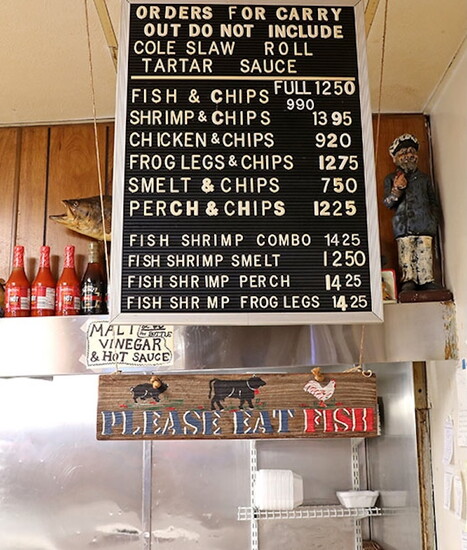 ORDERS FOR CARRY
OUT DO NOT INCLUDE
COLE SLAW ROLL
TARTAR SAUCE
FISH & CHIPS FULL 1250
990
SHRIMP & CHIPS 1395
CHICKEN & CHIPS 920
FROG LEGS & CHIPS 1275
SMELT & CHIPS 750
PERCH & CHIPS 1225
FISH SHRIMP COMBO 1425
FISH SHRIMP SMELT 1250
FISH SHRIMP PERCH 1425
FISH SHRIMP FROG LEGS 1425
MALT
VINEGAR
& HOT SAUCE
PLEASE EAT FISH